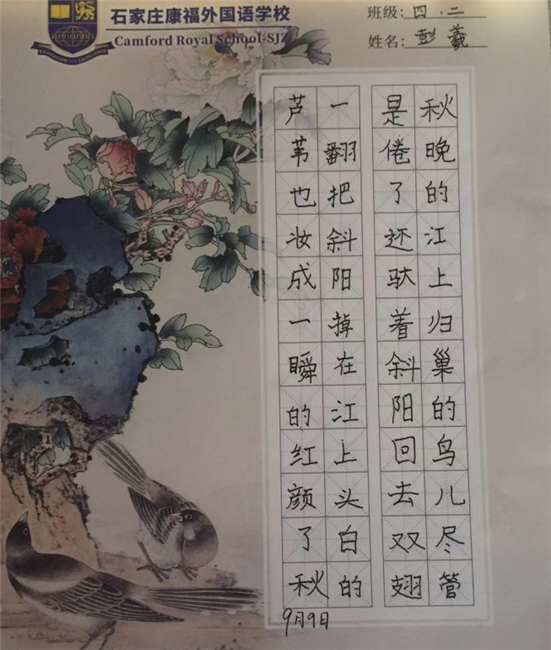 石家庄康福外国语学校
Camford Royal School·SJZ
班级：四.二
姓名：彭羲
秋晚的江上归巢的鸟儿尽管
是倦了还驮着斜阳回去双翅
一翻把斜阳掉在江上头白的
芦苇也妆成一瞬的红颜了秋
9月9日